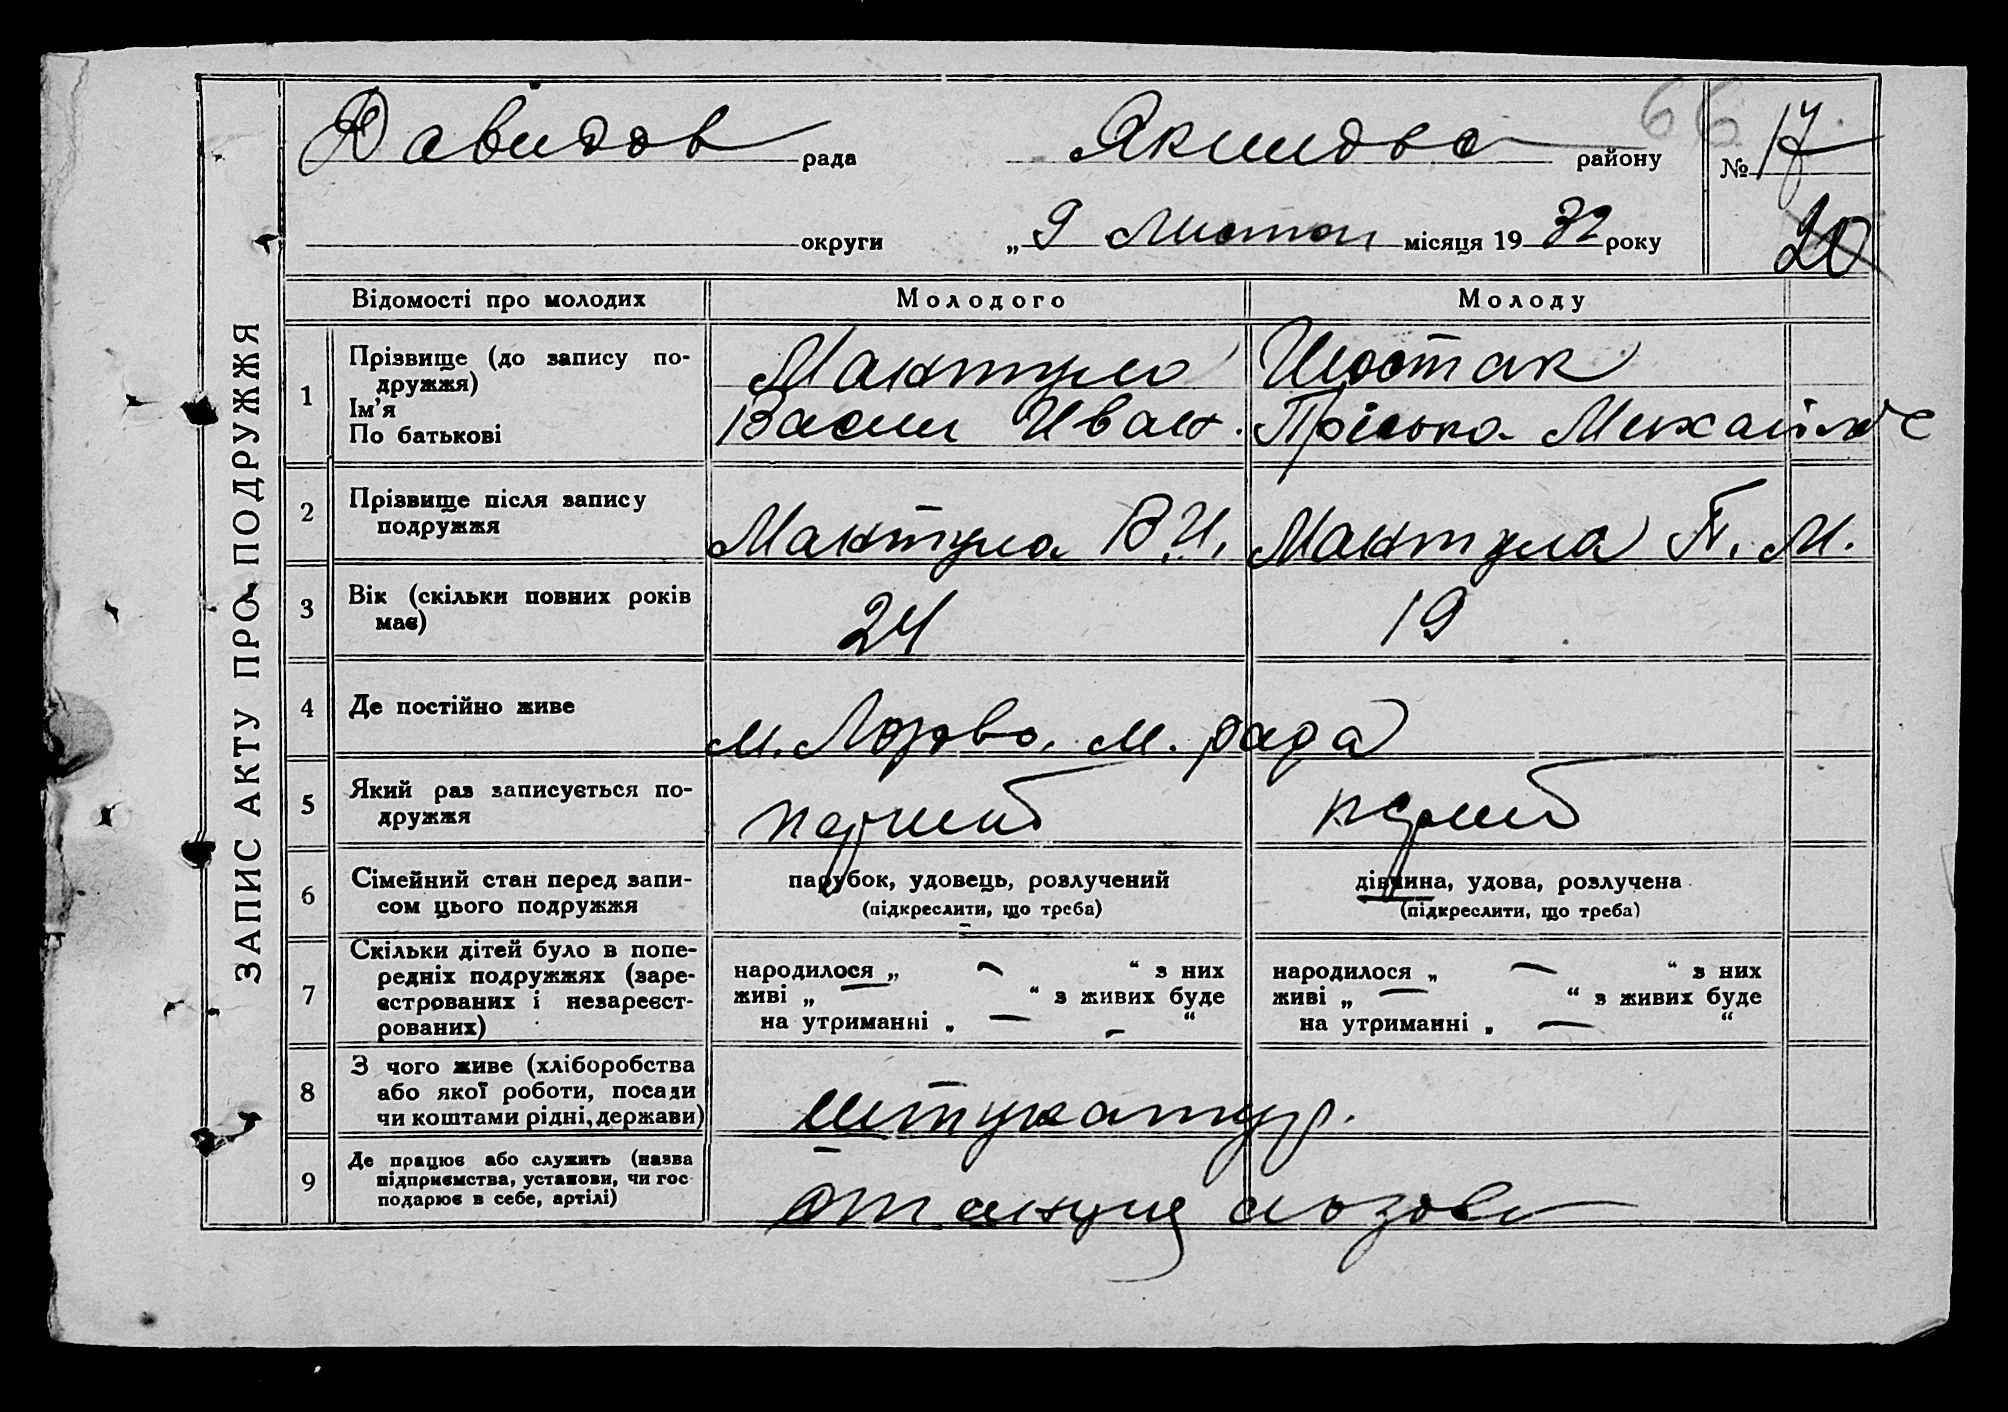 66
Давидов рада Якимова району № 17
20
округи „ 9 Листоп місяця 19 32 року
ЗАПИС АКТУ ПРО ПОДРУЖЖЯ
Відомості про молодих Молодого Молоду
1 Прізвище (до запису по-
дружжя)
Ім'я
По батькові
Мантула Шостак
Васили Иван. Пріська Михайлів
2 Прізвище після запису
подружжя
Мантула В.И. Мантула П. М.
3 Вік (скільки повних років
має)
24 19
4 Де постійно живе
м. Лозова. м. рада
5 Який раз записується по-
дружжя
перший перший
6 Сімейний стан перед запи-
сом цього подружжя
парубок, удовець, розлучений дівчина, удова, розлучена
(підкреслити, що треба) (підкреслити, що треба)
7 Скільки дітей було в попе-
редніх подружжях (заре-
єстрованих і незареєст-
рованих)
народилося „ — “ з них народилося „ — “ з них
живі „ — “ з живих буде живі „ — “ з живих буде
на утриманні „ — “ на утриманні „ — “
8 З чого живе (хліборобства
або якої роботи, посади
чи коштами рідні, держави)
штукатур.
9 Де працює або служить (назва
підприємства, установи, чи гос
подарює в себе, артілі)
станция лозова